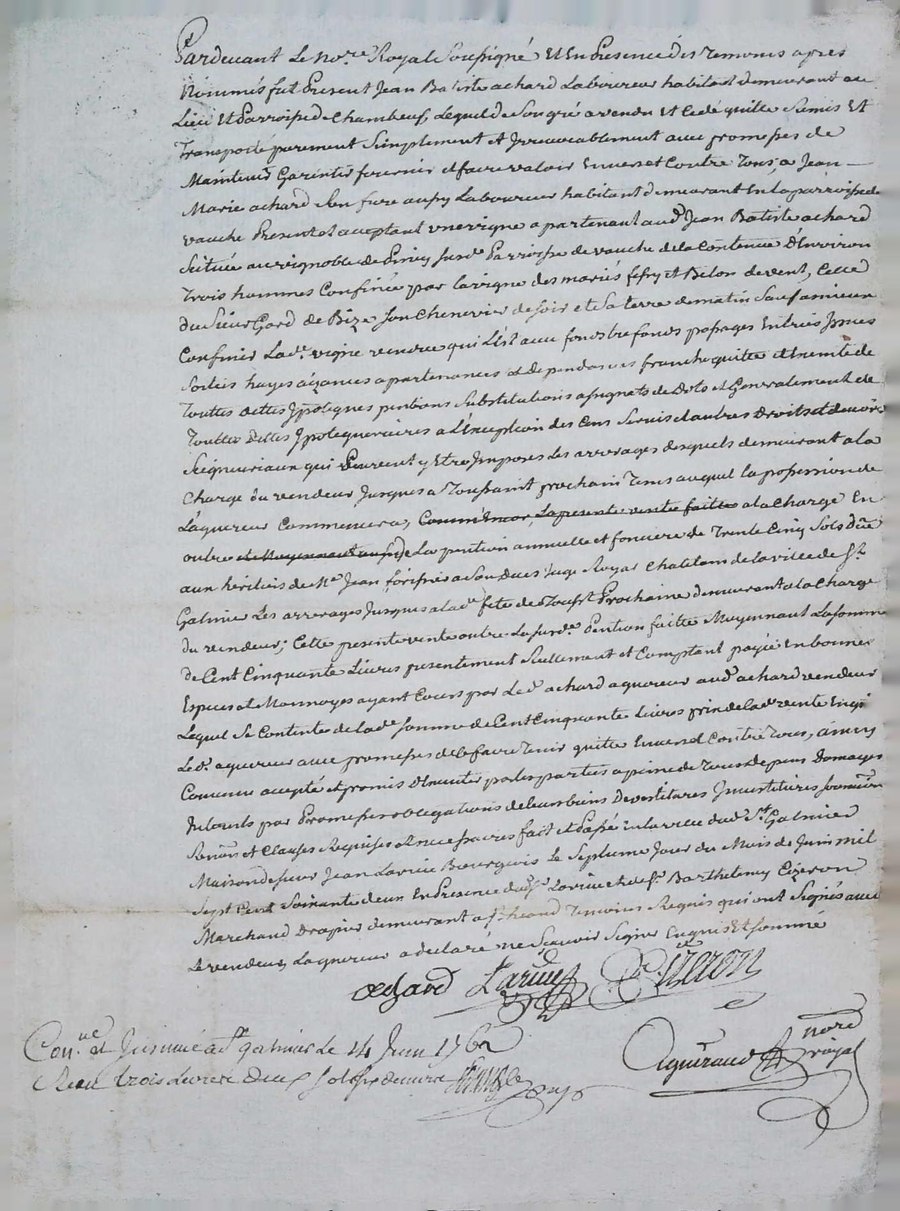 Pardevant Le No.re Royal Soussigné Et En Presence des Temoins apres
Nommés fut Present Jean Batiste achard Laboureur habitant demeurant au
Lieu Et Parroisse de Chambeuf, Lequel de Son gré a vendu Et Cedé quitte Remis Et
Transporte purement Simplement et Irrevocablement avec promesses de
Maintenir Garentir fournir et faire valoir Envers et Contre Tous, a Jean
Marie achard Son frere aussy Laboureur habitant demeurant En la parroisse de
vauche Present et aceptant une vigne apartenant aud. Jean Batiste achard
Scituée au vignoble de Parroisse de vauche de la Contenue D'Environ
Trois hommes Confinée par la vigne des mariés et Bilon de vent, Celle
du Sieur Gord de Bize Son Chenevier de Soir et Sa terre de matin Sauf a mieux
Confiner Lad.e vigne vendue qui L'est avec fonds tresfonds passages Entrées Issues
Sorties hayes aizances apartenances et dependances franche quitte et Exempte de
Touttes dettes Ypoteques pentions Substitutions assignats de Dots et Generalement de
Touttes Dettes Ypotequeraires a L'Exception des Cens Servis et autres Droits et devoirs
Seigneuriaux qui Peuvent y Etre Imposes Les arrerages desquels demeurant a la
Charge du vendeur Jusques a Toussaint prochain Tems auquel la possession de
L'aquereur Commencera, Comm'Encor La presente vente faitte a la Charge En
outre La pention annuelle et fonciere de Trente Cinq Sols Düe
aux heritiers de M.e Jean Juge Royal Chatelain de la ville de S.t
Galmier Les arrerages Jusques a lad.e fête de Touss.t Prochaine demeurant a la Charge
du vendeur; Cette presente vente outre La Susd.e Pention faitte Moyennant La Somme
de Cent Cinquante Livres presentement Reellement et Comptant payée En bonnes
Especes et Monnoyes ayant Cours par Le d. achard aquereur aud. achard vendeur
Lequel Se Contente de lad.e Somme de Cent Cinquante Livres prix de lad.e vente En qu
Le d. aquereur avec promesses de le faire Tenir quitte Envers et Contre Tous, ainsy
Convenu accepté et promis D'Executer par les parties a peine de Tous depens Domages
Interets par Promesses obligations de leurs biens Soumissions
Renons et Clauses Requises et necessaires fait et Passé En la ville dud. S.t Galmier
Maison de Sieur Jean Larive Bourgeois Le Septieme Jour du Mois de Juin mil
Sept Cent Soixante deux En Presence dud. S.r Larive et de S.r Barthelemy Cizeron
Marchand Drapier demeurant a S.t Temoins Requis qui ont Signés avec
Le vendeur, L'aquereur a declaré ne Scavoir Signer Enquis Et Sommé
achard Larive Cizeron
Con.lé et Insinué a S.t galmier Le 14 Juin 1762
Reçu trois Livres
nore
royal